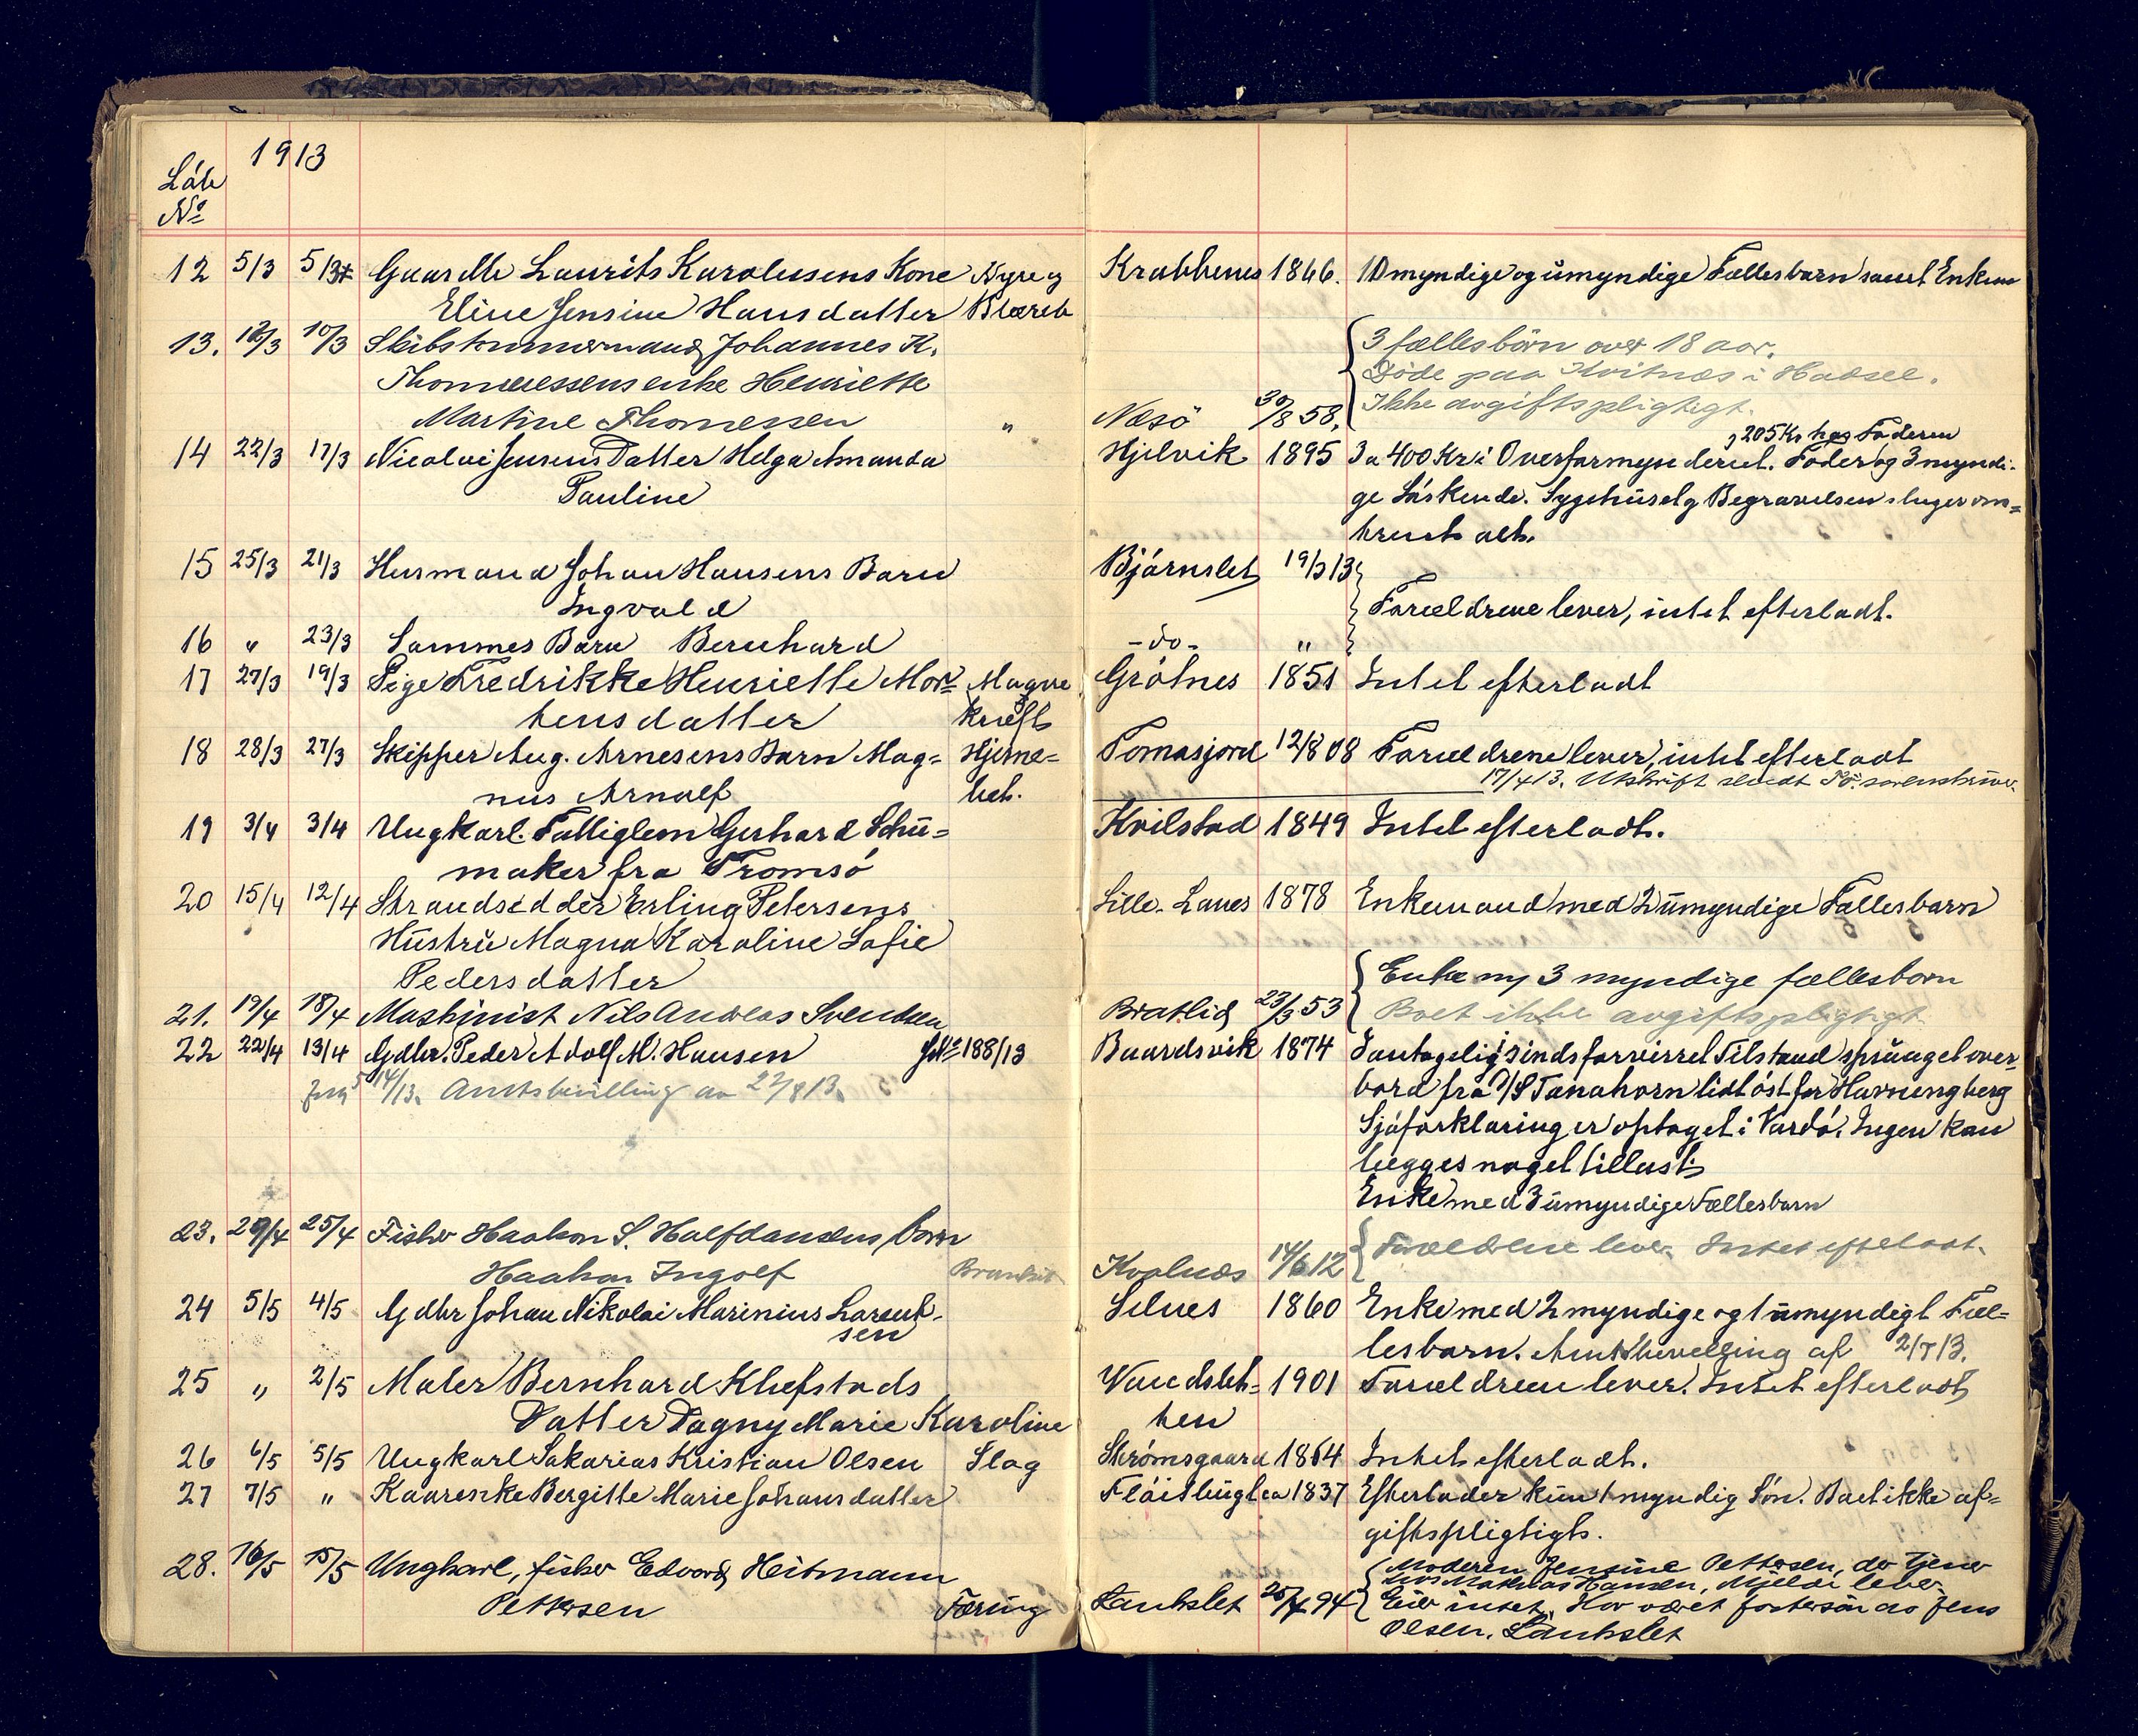 1913
Löb
No
12 5/3 5/3 Gaardbr Laurits Karolusens Kone Nyre og Krabbenes 1866. 10 myndige og umyndige Fællesbarn samt Enkem
Eline Jensine Hansdatter Blæreb
13. 10/3 10/3 Skibstømmermand Johannes K. 3 fællesbörn over 18 aar.
Thomassens enke Henriette Döde paa Kvitnæs i Hadsel.
Martine Thomessen " Næsö 30/8 58, Ikke avgiftspligtigt.
, 205 Kr hos Faderen
14 22/3 17/3 Nicolai Jensens Datter Helga Amanda Hjelvik 1895 3 a 400 Kr i Overformynderiet. Fader og 3 myndi-
Pauline ge Söskende. Sygehus og Begravelsen sluger om=
trent alt.
15 25/3 21/3 Husmand Johan Hansens Barn Bjørnslet 19/3 13
Ingvald Forældrene lever, intet efterladt.
16 " 23/3 Sammes Barn Bernhard -do- "
17 27/3 19/3 Pige Fredrikke Henriette Mor= Magne Grötnes 1851 Intet efterladt
tensdatter kræft
18 28/3 27/3 Skipper Aug. Arnesens Barn Mag= Hjerne= Tomasjord 12/8 08 Forældrene lever, intet efterladt
17/4 13. Utskrift sendt Tö. sorenskriver.
nus Arnolf bet.
19 3/4 3/4 Ungkarl Fattiglem Gerhard Schu= Kvilstad 1849 Intet efterladt.
maker fra Tromsö
20 15/4 12/4 Strandsidder Erling Petersens Lille-Lanes 1878 Enkemand med 2 umyndige Fællesbarn
Hustru Magna Karoline Sofie
Pedersdatter Enke m/ 3 myndige fællesbarn
21. 19/4 18/4 Maskinist Nils Andreas Svendsen Bratlid 23/3 53 Boet ikke avgiftspligtigt
22 22/4 13/4 Gdbr. Peder Adolf M. Hansen J.No 188/13 Baardsvik 1874 I antagelig sindsforvirret Tilstand sprunget over=
14/13. Amtsbevilling av 22/8 13. bord fra D/S Tanahorn lidt öst for Havningberg
Sjöforklaring er optaget i Vardö. Ingen kan
lægges noget til last.
Enke med 3 umyndige Fællesbarn
23. 29/4 25/4 Fisker Haakon S. Halfdansens barn Forældrene lever. Intet efterladt.
Haakon Ingolf Bronkit Kvalnæs 14/6 12
24 5/5 4/5 Gdbr Johan Nikolai Marinius Larent- Selnes 1860 Enke med 2 myndige og 1 umyndigt Fæl=
sen lesbarn. Amtsbevilling af 2/7 13.
25 " 2/5 Maler Bernhard Klefstads Vandslet= 1901 Forældrene lever. Intet efterladt
Datter Dagny Marie Karoline ten
26 6/5 5/5 Ungkarl Sakarias Kristian Olsen Slag Strömsgaard 1864 Intet efterladt.
27 7/5 " Kaarenke Bergitte Marie Johansdatter Flöitbugt ca 1837 Efterlader kun 1 myndig Sön. Boet ikke af=
giftspligtigt.
28. 16/5 15/5 Ungkarl, fisker Edvard Heitmann Moderen Jensine Pettersen, der tjener
hos Mathias Hansen, Mjelde lever.
Pettersen Tæring Lankslet 25/4 94 Eier intet. Har været fostersön av Jens
Olsen, Lankslet